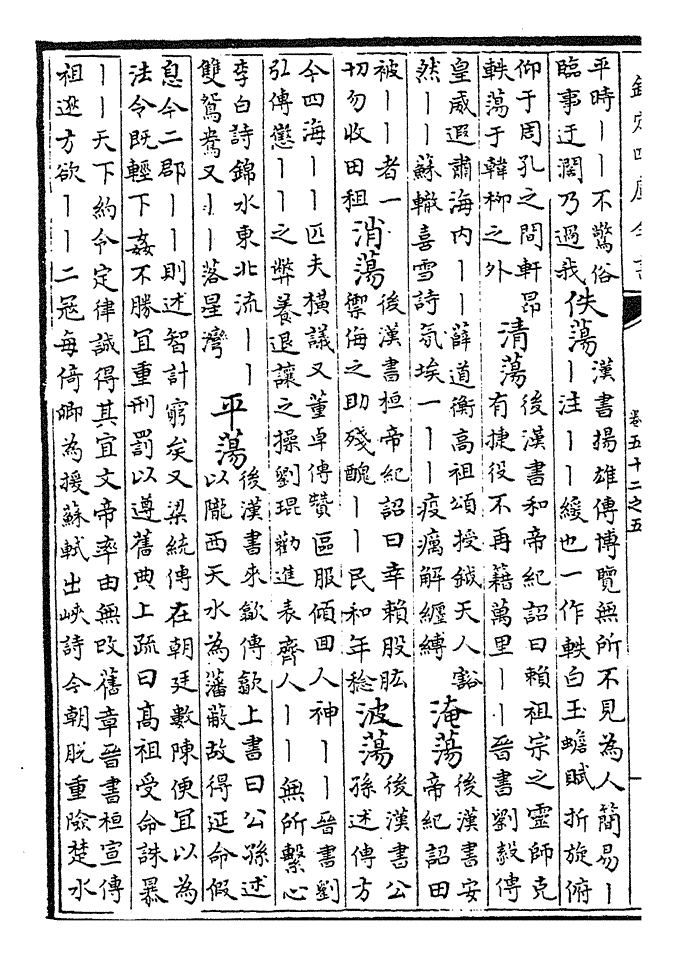 欽定四庫全書
卷五十二之五
平時丨丨不驚俗
臨事迂濶乃過我
佚蕩
漢書揚雄傳博覽無所不見為人簡易丨
丨注丨丨緩也一作軼白玉蟾賦折旋俯
仰于周孔之間軒昂
軼蕩于韓柳之外
清蕩
後漢書和帝紀詔曰賴祖宗之靈師克
有捷役不再籍萬里丨丨晉書劉毅傳
皇威遐肅海内丨丨薛道衡高祖頌授鉞天人豁
然丨丨蘇轍喜雪詩氛埃一丨丨疫癘解纏縛
淹蕩
後漢書安
帝紀詔田
被丨丨者一
切勿收田租
消蕩
後漢書桓帝紀詔曰幸賴股肱
禦侮之助殘醜丨丨民和年稔
波蕩
後漢書公
孫述傳方
今四海丨丨匹夫橫議又董卓傳贊區服傾回人神丨丨晉書劉
弘傳懲丨丨之弊養退讓之操劉琨勸進表齊人丨丨無所繫心
李白詩錦水東北流丨丨
雙鴛鴦又丨丨落星灣
平蕩
後漢書來歙傳歙上書曰公孫述
以隴西天水為藩蔽故得延命假
息今二郡丨丨則述智計窮矣又梁統傳在朝廷數陳便宜以為
法令既輕下姦不勝宜重刑罰以遵舊典上疏曰高祖受命誅暴
丨丨天下約令定律誠得其宜文帝率由無改舊章晉書桓宣傳
祖逖方欲丨丨二冦每倚卿為援蘇軾出峽詩今朝脱重險楚水